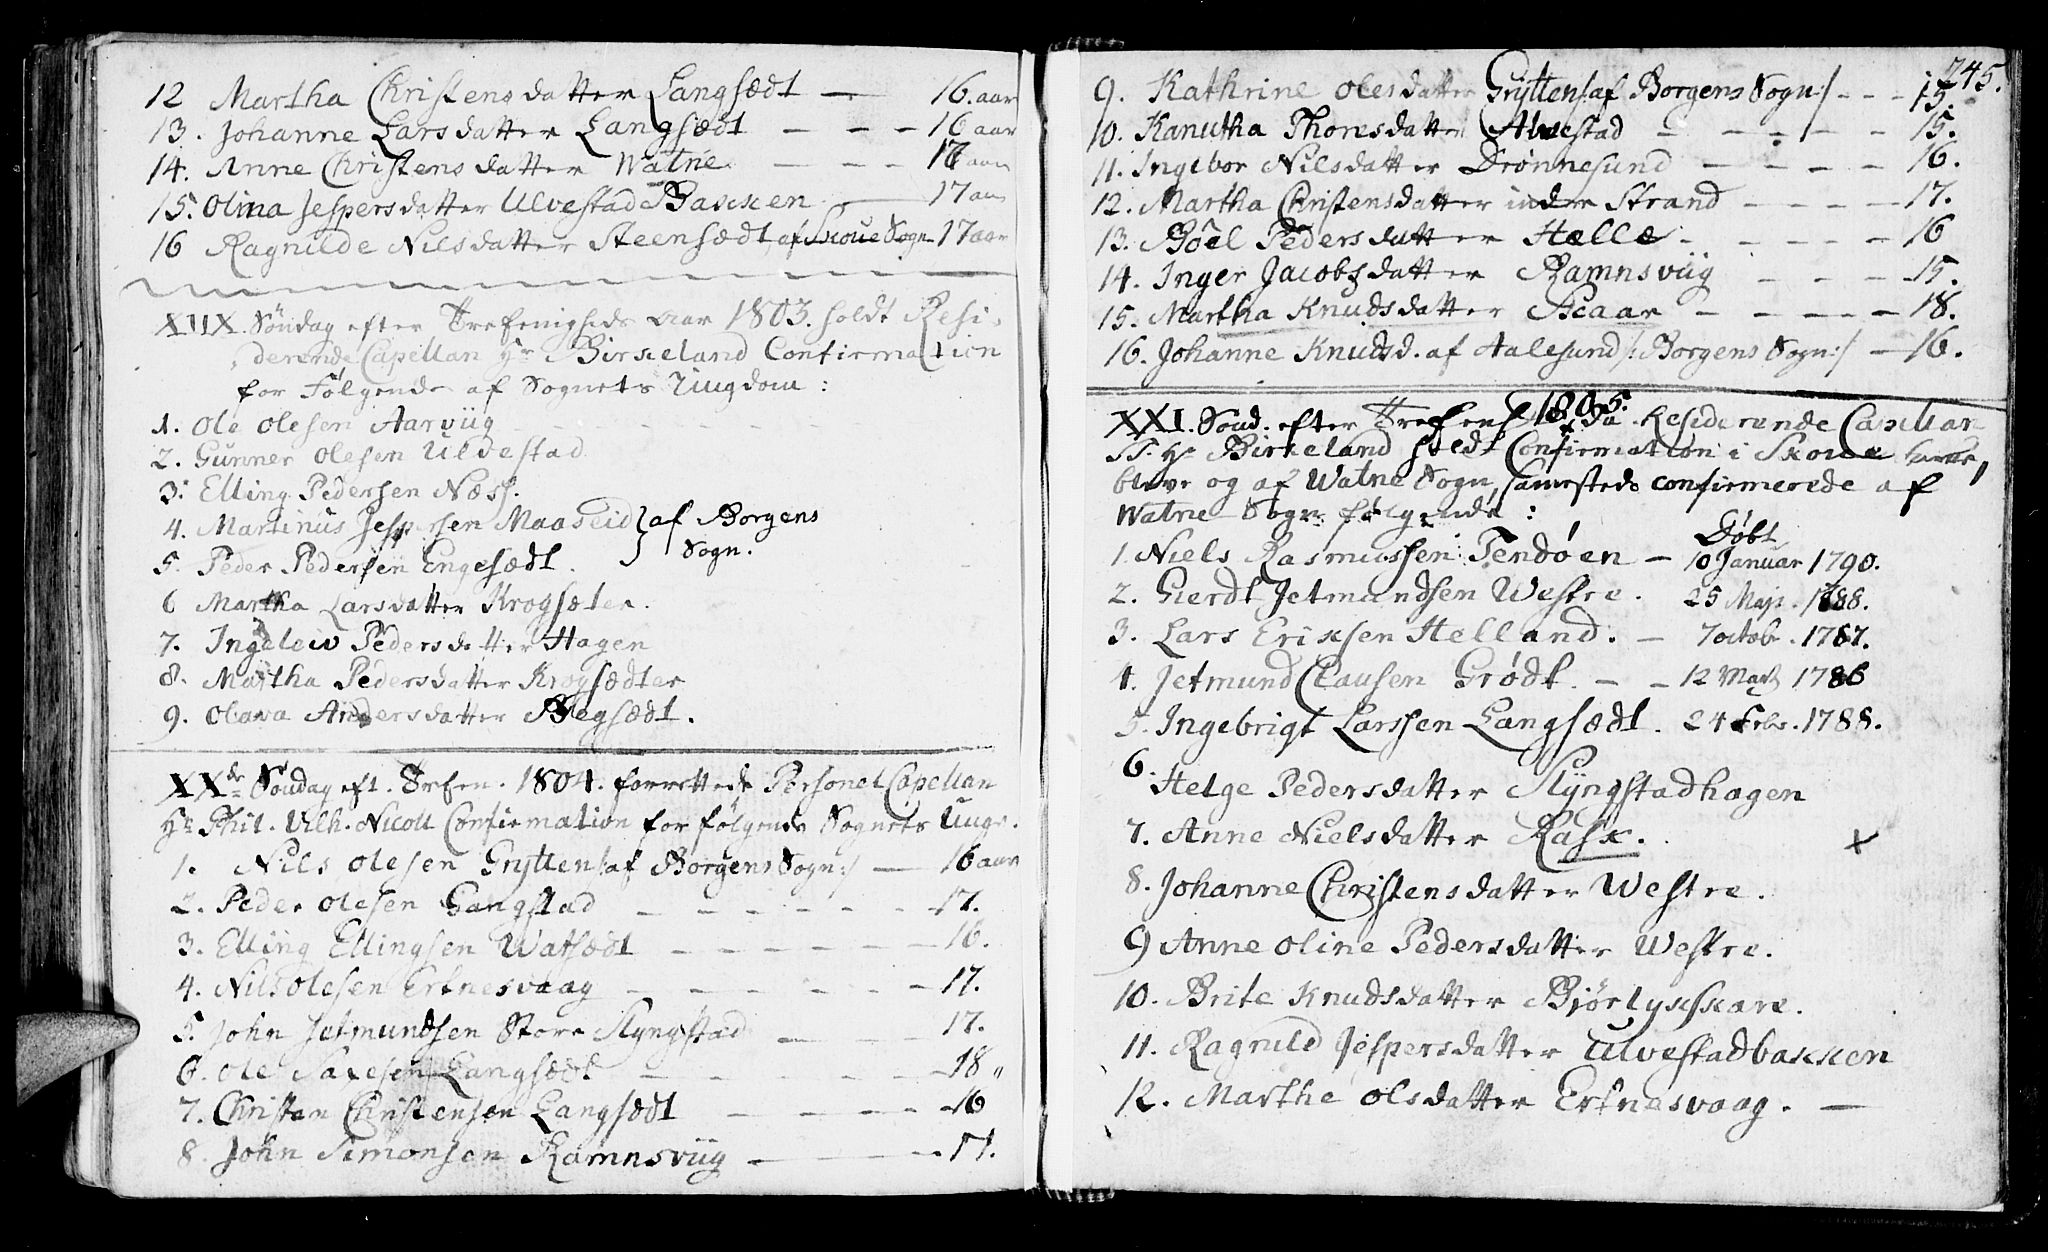 12 Martha Christensdatter Langsædt — 16. aar
13. Johanne Larsdatter Langsædt — — — 16 aar
14. Anne Christensdatter Watne — — — 16 aar
15. Olina Jespersdatter Ulvestad Bakken — 17 aar
16 Ragnilde Nilsdatter Steensædt af Skoue Sogn 17 aar
XIIX Söndag efter Trefenigheds aar 1803. holdt Resi-
derende Capellan Hr Birkeland Confirmation
for Følgende af Sognets Ungdom:
1. Ole Olesen Aarviig
2. Gunner Olesen Ulvestad
3. Elling Pedersen Næss.
4. Martinus Jespersen Maaseid } af Borgens
5. Peder Pedersen Engesædt. } Sogn.
6 Martha Larsdatter Krogsæter.
7. Ingelew Pedersdatter Hagen
8. Martha Pedersdatter Krogsædter
9. Olava Andersdatter Slegsædt.
XXde Söndag eft. Trefen. 1804. forrettede Personel Capellan
Hr Phil. Vilh. Nicoll Confirmation for følgende Sognets Unge.
1. Nils Olesen Grytten /: af Borgens Sogn :/ — 16 aar
2. Peder Olesen Gangstad — — — — — — 17.
3. Elling Ellingsen Watsædt — — — — — 16.
4. Nils Olesen Erknesvaag — — — — — 17.
5. John Jetmundsen Store Slyngstad — — — 17.
6. Ole Saxesen Langsædt — — — — — 18 "
7. Christen Christensen Langsædt — — — 16
8. John Simonsen Ramnsviig — — — — 17.
245.
9. Kathrine Olesdatter Grytten /: af Borgens Sogn :/ - - - 15.
10. Kanutha Thoresdatter Alvestad — — — — 15.
11. Ingebor Nilsdatter Drönnesund — — — — 16.
12. Martha Christensdatter indre Strand — — — — 17.
13. Böel Pedersdatter Helle — — — — 16
14. Inger Jacobsdatter Ramnsviig — — — — 15.
15. Martha Knudsdatter Skaar — — — — 18.
16. Johanne Knudsd. af Aalesund /: Borgens Sogn :/ — 16.
XXI. Sönd. efter Trefens 1805. da Residerende Capellan
Hr Birkeland holdt Confirmation i Skoue
bleve og af Watne Sogn samesteds confirmerede af
Watne Sogn følgende:
Døbt
1 Niels Rasmussen Tendöen — 10 Januar 1790.
2. Gierdt Jetmundsen Westre. 25 Maji. 1788.
3. Lars Eriksen Helland. — 7 octobr. 1787.
4. Jetmund Clausen Grødt — — 12 Marts 1786
5. Ingebrigt Larssen Langsædt. 24 Febr. 1788.
6. Helge Pedersdatter Slyngstadhagen
7. Anne Nielsdatter Rask. x
8. Johanne Christensdatter Westre.
9 Anne Oline Pedersdatter Westre.
10. Brite Knudsdatter Bjørlykskare.
11. Ragnild Jespersdatter Ulvestadbakken
12. Marthe Olsdatter Erknesvaag. —